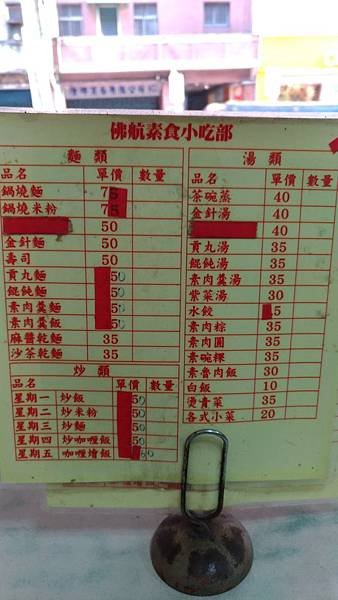 佛航素食小吃部
麵類
品名 單價 數量
鍋燒麵 75
鍋燒米粉 75
50
金針麵 50
壽司 50
貢丸麵 50
餛飩麵 50
素肉羹麵 50
素肉羹飯 50
麻醬乾麵 35
沙茶乾麵 35
炒類
品名 單價 數量
星期一 炒飯 50
星期二 炒米粉 50
星期三 炒麵 50
星期四 炒咖喱飯 50
星期五 咖喱燴飯 60
湯類
品名 單價 數量
茶碗蒸 40
金針湯 40
40
貢丸湯 35
餛飩湯 35
素肉羹湯 35
紫菜湯 30
水餃 5
素肉粽 35
素肉圓 35
素碗粿 35
素魯肉飯 30
白飯 10
燙青菜 35
各式小菜 20